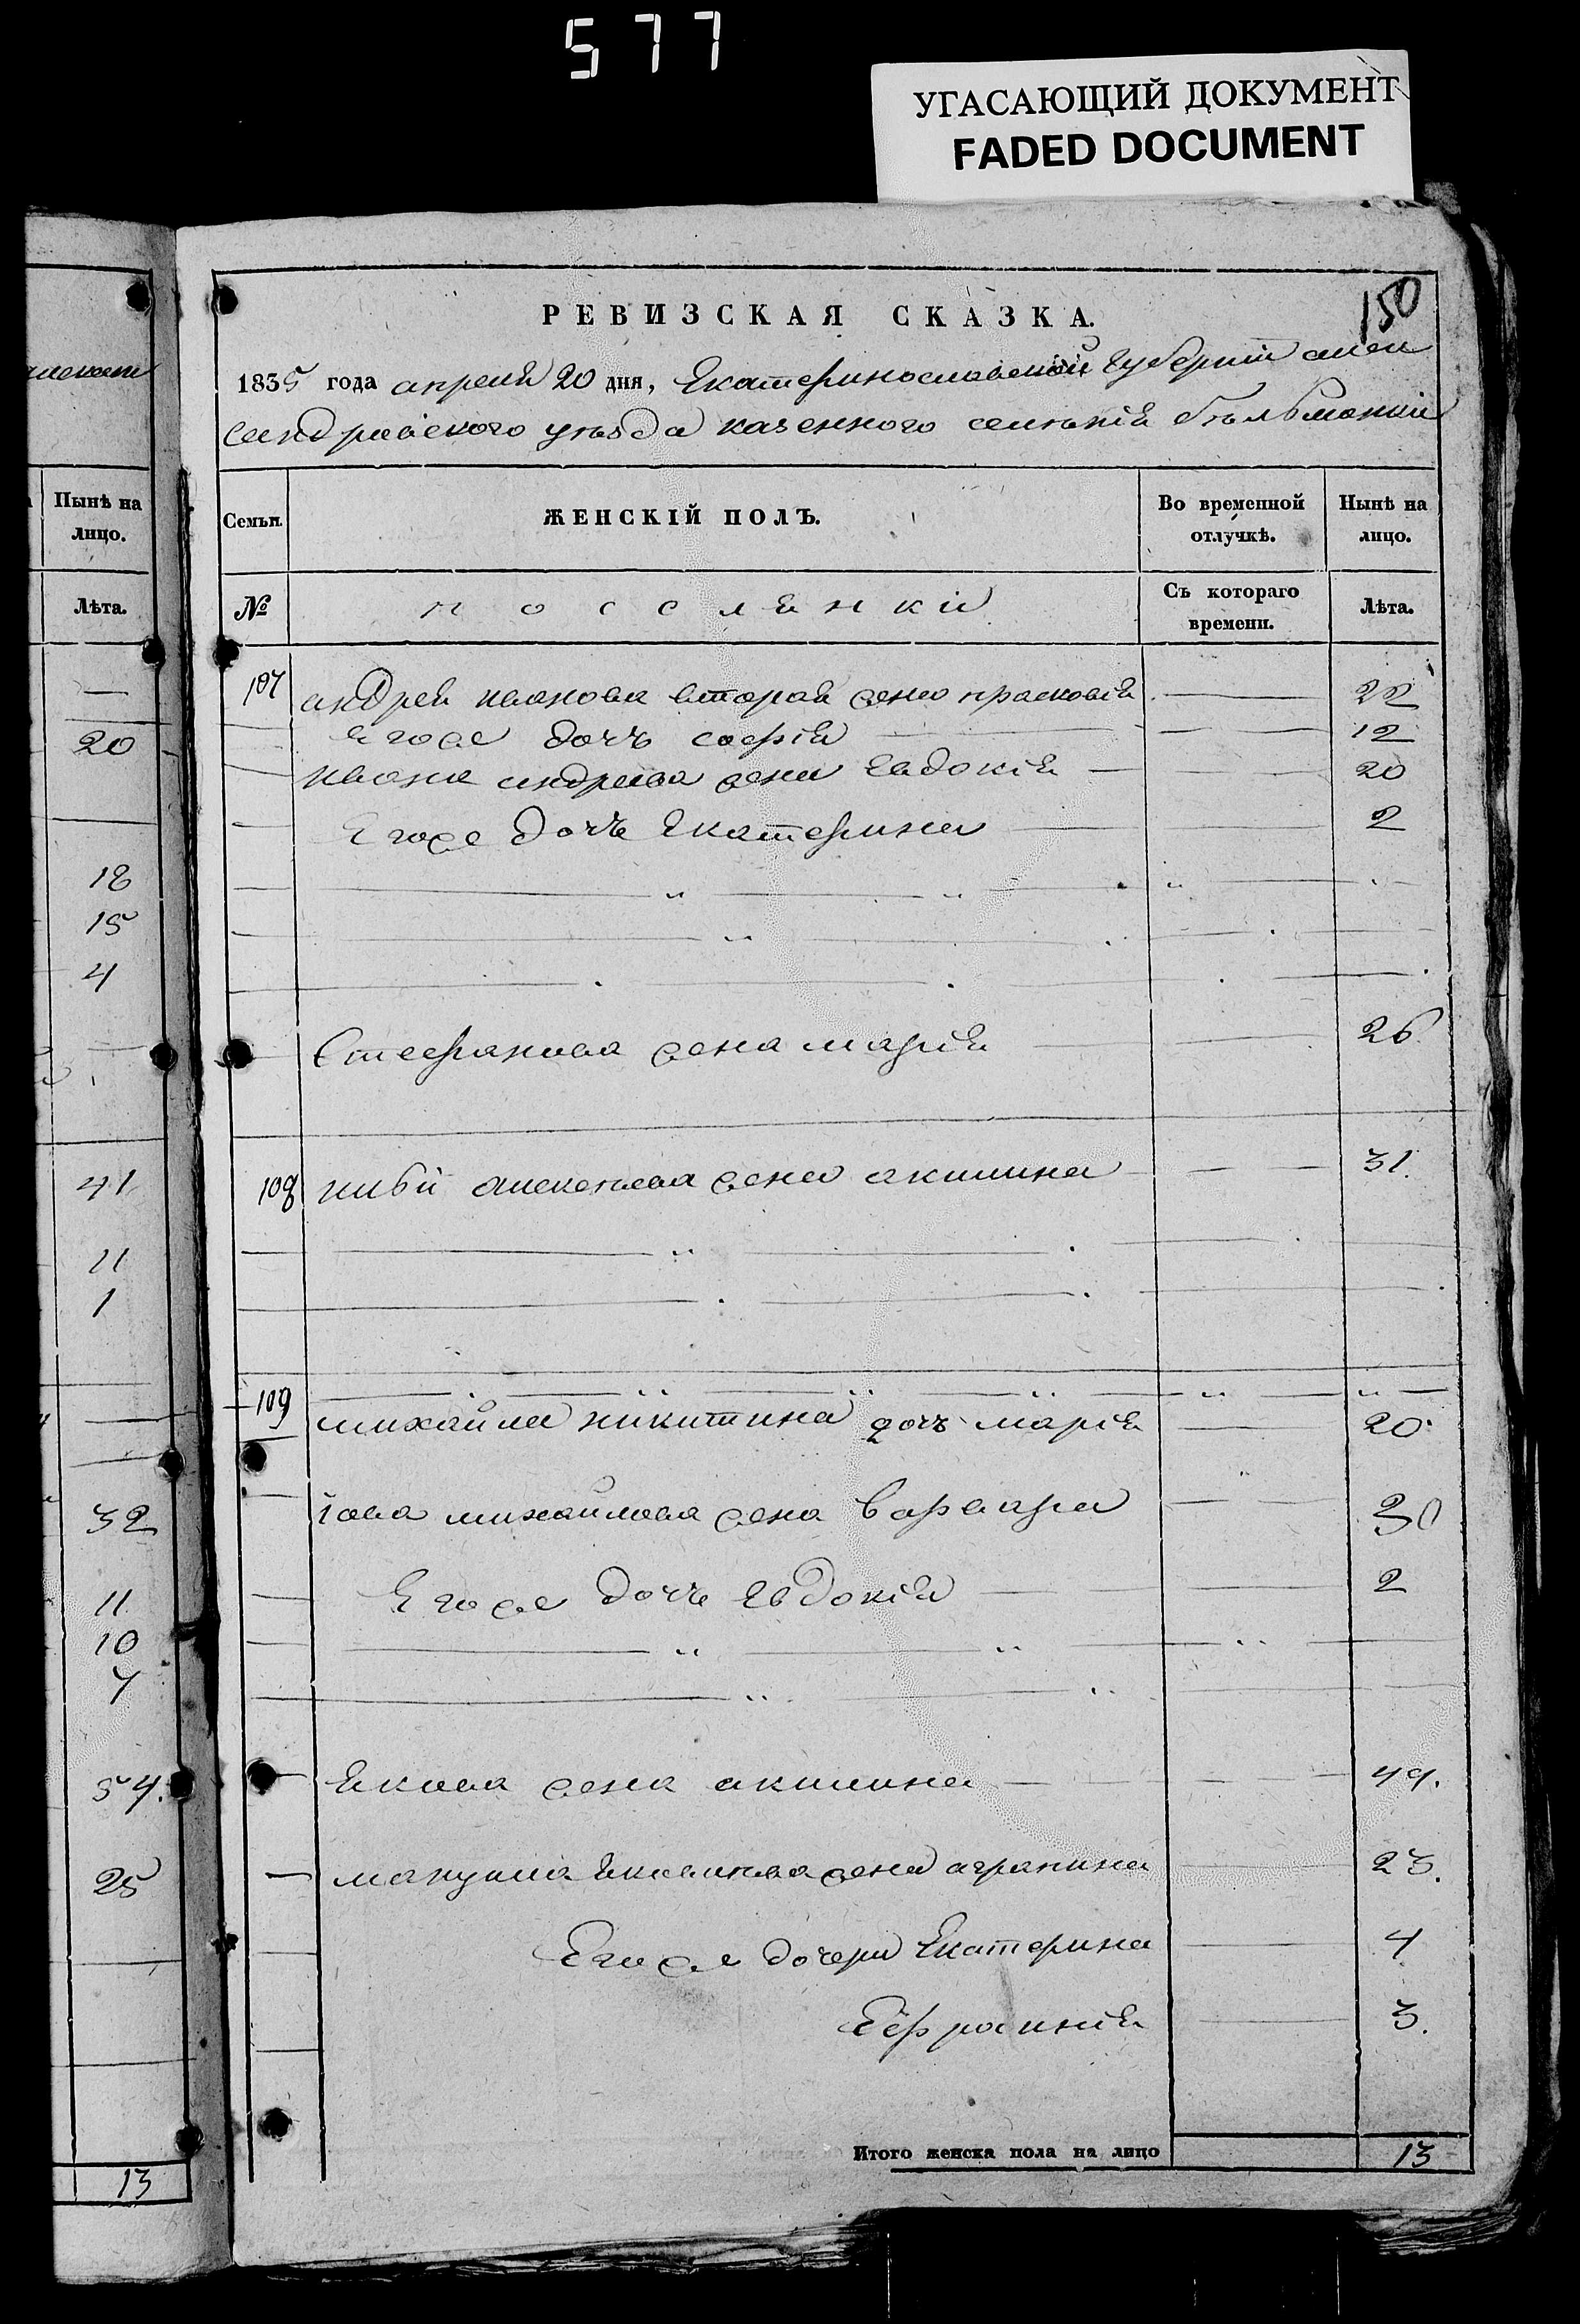 577
УГАСАЮЩИЙ ДОКУМЕНТ
FADED DOCUMENT
РЕВИЗСКАЯ СКАЗКА.
150
1835 года апреля 20 дня, Екатеринославской Губернии алек
сандровского уѣзда казенного селѣнія бѣльманки
Семьи.
ЖЕНСКІЙ ПОЛЪ.
Во временной отлучкѣ.
Нынѣ на лицо.
№
поселянки
Съ котораго времени.
Лѣта.
107 андрея иванова вторая жена прасковія — 22
Егоже дочъ софія — 12
ивана андреева жена Евдокія — 20
Егоже дочъ Екатерина — 2
Стефанова жена марія — 26
108 алексеева жена акилина — 31.
109
михайла никитина дочъ марія — 20.
іова михайлова жена варвара — 30
Егоже дочъ Евдокія — 2
Якова жена акилина — 49.
жена агрипина — 23.
Егоже дочери Екатерина — 4
Ефросинія — 3.
Итого женска пола на лицо 13
Нынѣ на лицо.
Лѣта.
—
20
18
15
4
41
11
1
32
11
10
7
54.
25
13